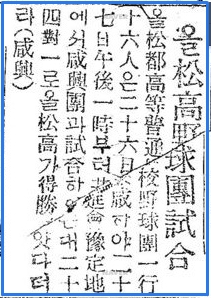 올松高野球團試合
올松都高等普通學校野球團一行
十六人은二十六日來咸하야二十
七日午後一時부터
豫定地
에서咸興團과試合하
대二十
四對一로올松高가得勝
앗다더
라(咸興)